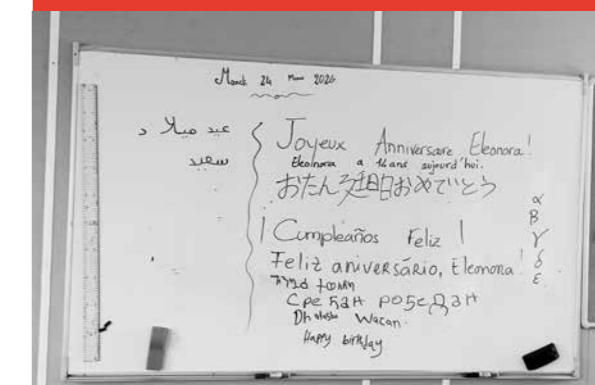 Mardi 24 Mars
عيد ميلا د
سعيد
Joyeux Anniversaire Eleonora!
a ans aujourd'hui.
おたん 日おめでとう
¡ Cumpleaños Feliz !
Feliz aniversário, Eleonora!
Сре ћан рођедан
Wacan
Happy birthday
α
β
γ
δ
ε